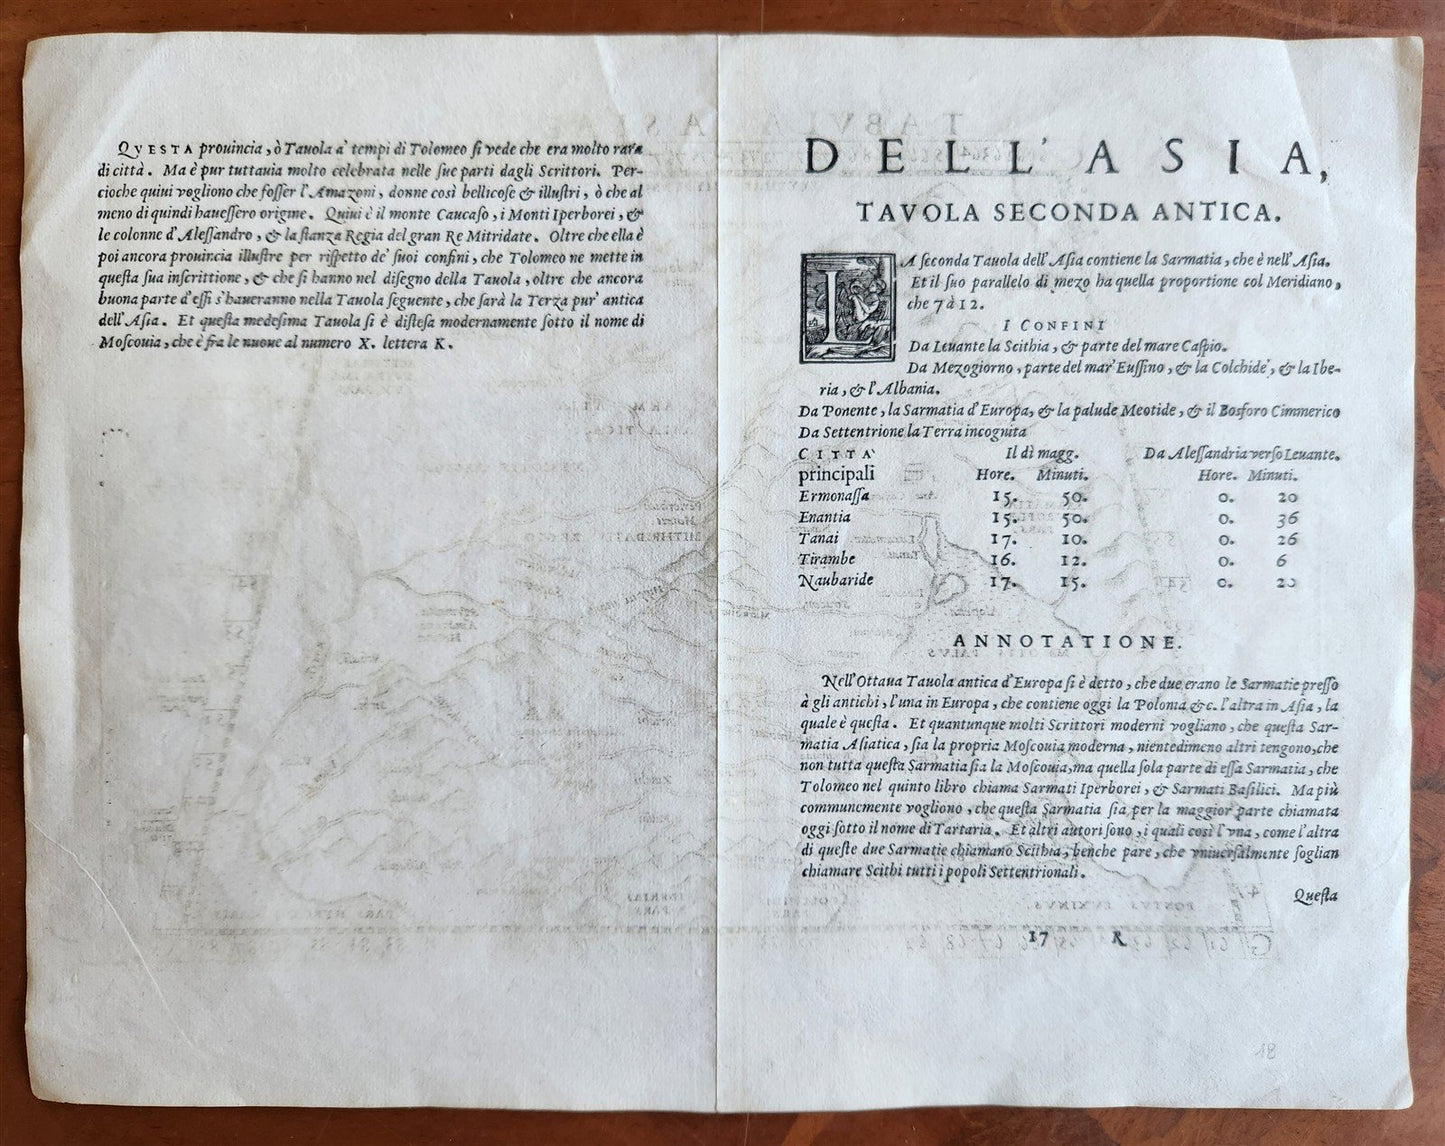 DELL'ASIA,
TAVOLA SECONDA ANTICA.
LA seconda Tauola dell'Asia contiene la Sarmatia, che è nell'Asia.
Et il suo parallelo di mezo ha quella proportione col Meridiano,
che 7 à 12.
I CONFINI
Da Leuante la Scithia, & parte del mare Caspio.
Da Mezogiorno, parte del mar' Eussino, & la Colchide, & la Ibe-
ria, & l'Albania.
Da Ponente, la Sarmatia d'Europa, & la palude Meotide, & il Bosforo Cimmerico
Da Settentrione la Terra incognita
CITTA' Il dì magg. Da Alessandria verso Leuante.
principali Hore. Minuti. Hore. Minuti.
Ermonassa 15. 50. 0. 20
Enantia 15. 50. 0. 36
Tanai 17. 10. 0. 26
Tirambe 16. 12. 0. 6
Naubaride 17. 15. 0. 20
ANNOTATIONE.
Nell'Ottaua Tauola antica d'Europa si è detto, che due erano le Sarmatie presso
à gli antichi, l'una in Europa, che contiene oggi la Polonia &c. l'altra in Asia, la
quale è questa. Et quantunque molti Scrittori moderni vogliano, che questa Sar-
matia Asiatica, sia la propria Moscouia moderna, nientedimeno altri tengono, che
non tutta questa Sarmatia sia la Moscouia, ma quella sola parte di essa Sarmatia, che
Tolomeo nel quinto libro chiama Sarmati Iperborei, & Sarmati Basilici. Ma più
communemente vogliono, che questa Sarmatia sia per la maggior parte chiamata
oggi sotto il nome di Tartaria. Et altri autori sono, i quali così l'vna, come l'altra
di queste due Sarmatie chiamano Scithia, benche pare, che vniuersalmente soglian
chiamare Scithi tutti i popoli Settentrionali.
Questa
17 R
18
QVESTA prouincia, ò Tauola a' tempi di Tolomeo si vede che era molto rara
di città. Ma è pur tuttauia molto celebrata nelle sue parti dagli Scrittori. Per-
cioche quiui vogliono che fosser l'Amazoni, donne così bellicose & illustri, ò che al
meno di quindi hauessero origine. Quiui è il monte Caucaso, i Monti Iperborei, &
le colonne d'Alessandro, & la stanza Regia del gran Re Mitridate. Oltre che ella è
poi ancora prouincia illustre per rispetto de' suoi confini, che Tolomeo ne mette in
questa sua inscrittione, & che si hanno nel disegno della Tauola, oltre che ancora
buona parte d'essi s'haueranno nella Tauola seguente, che sarà la Terza pur' antica
dell'Asia. Et questa medesima Tauola si è distesa modernamente sotto il nome di
Moscouia, che è fra le nuoue al numero X. lettera K.